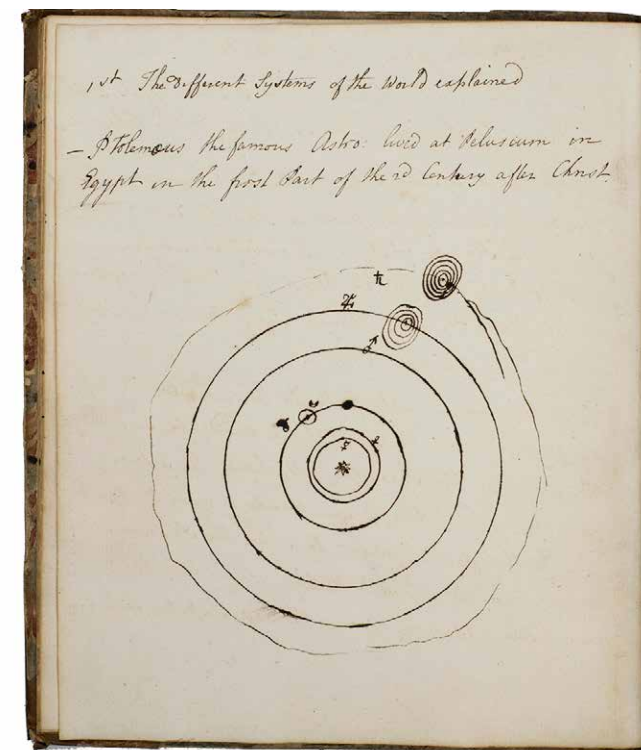 1st The Different Systems of the World explained
– Ptolemæus the famous Astro: lived at Pelusium in
Egypt in the first Part of the 2d Century after Christ.
♄
♃
♂